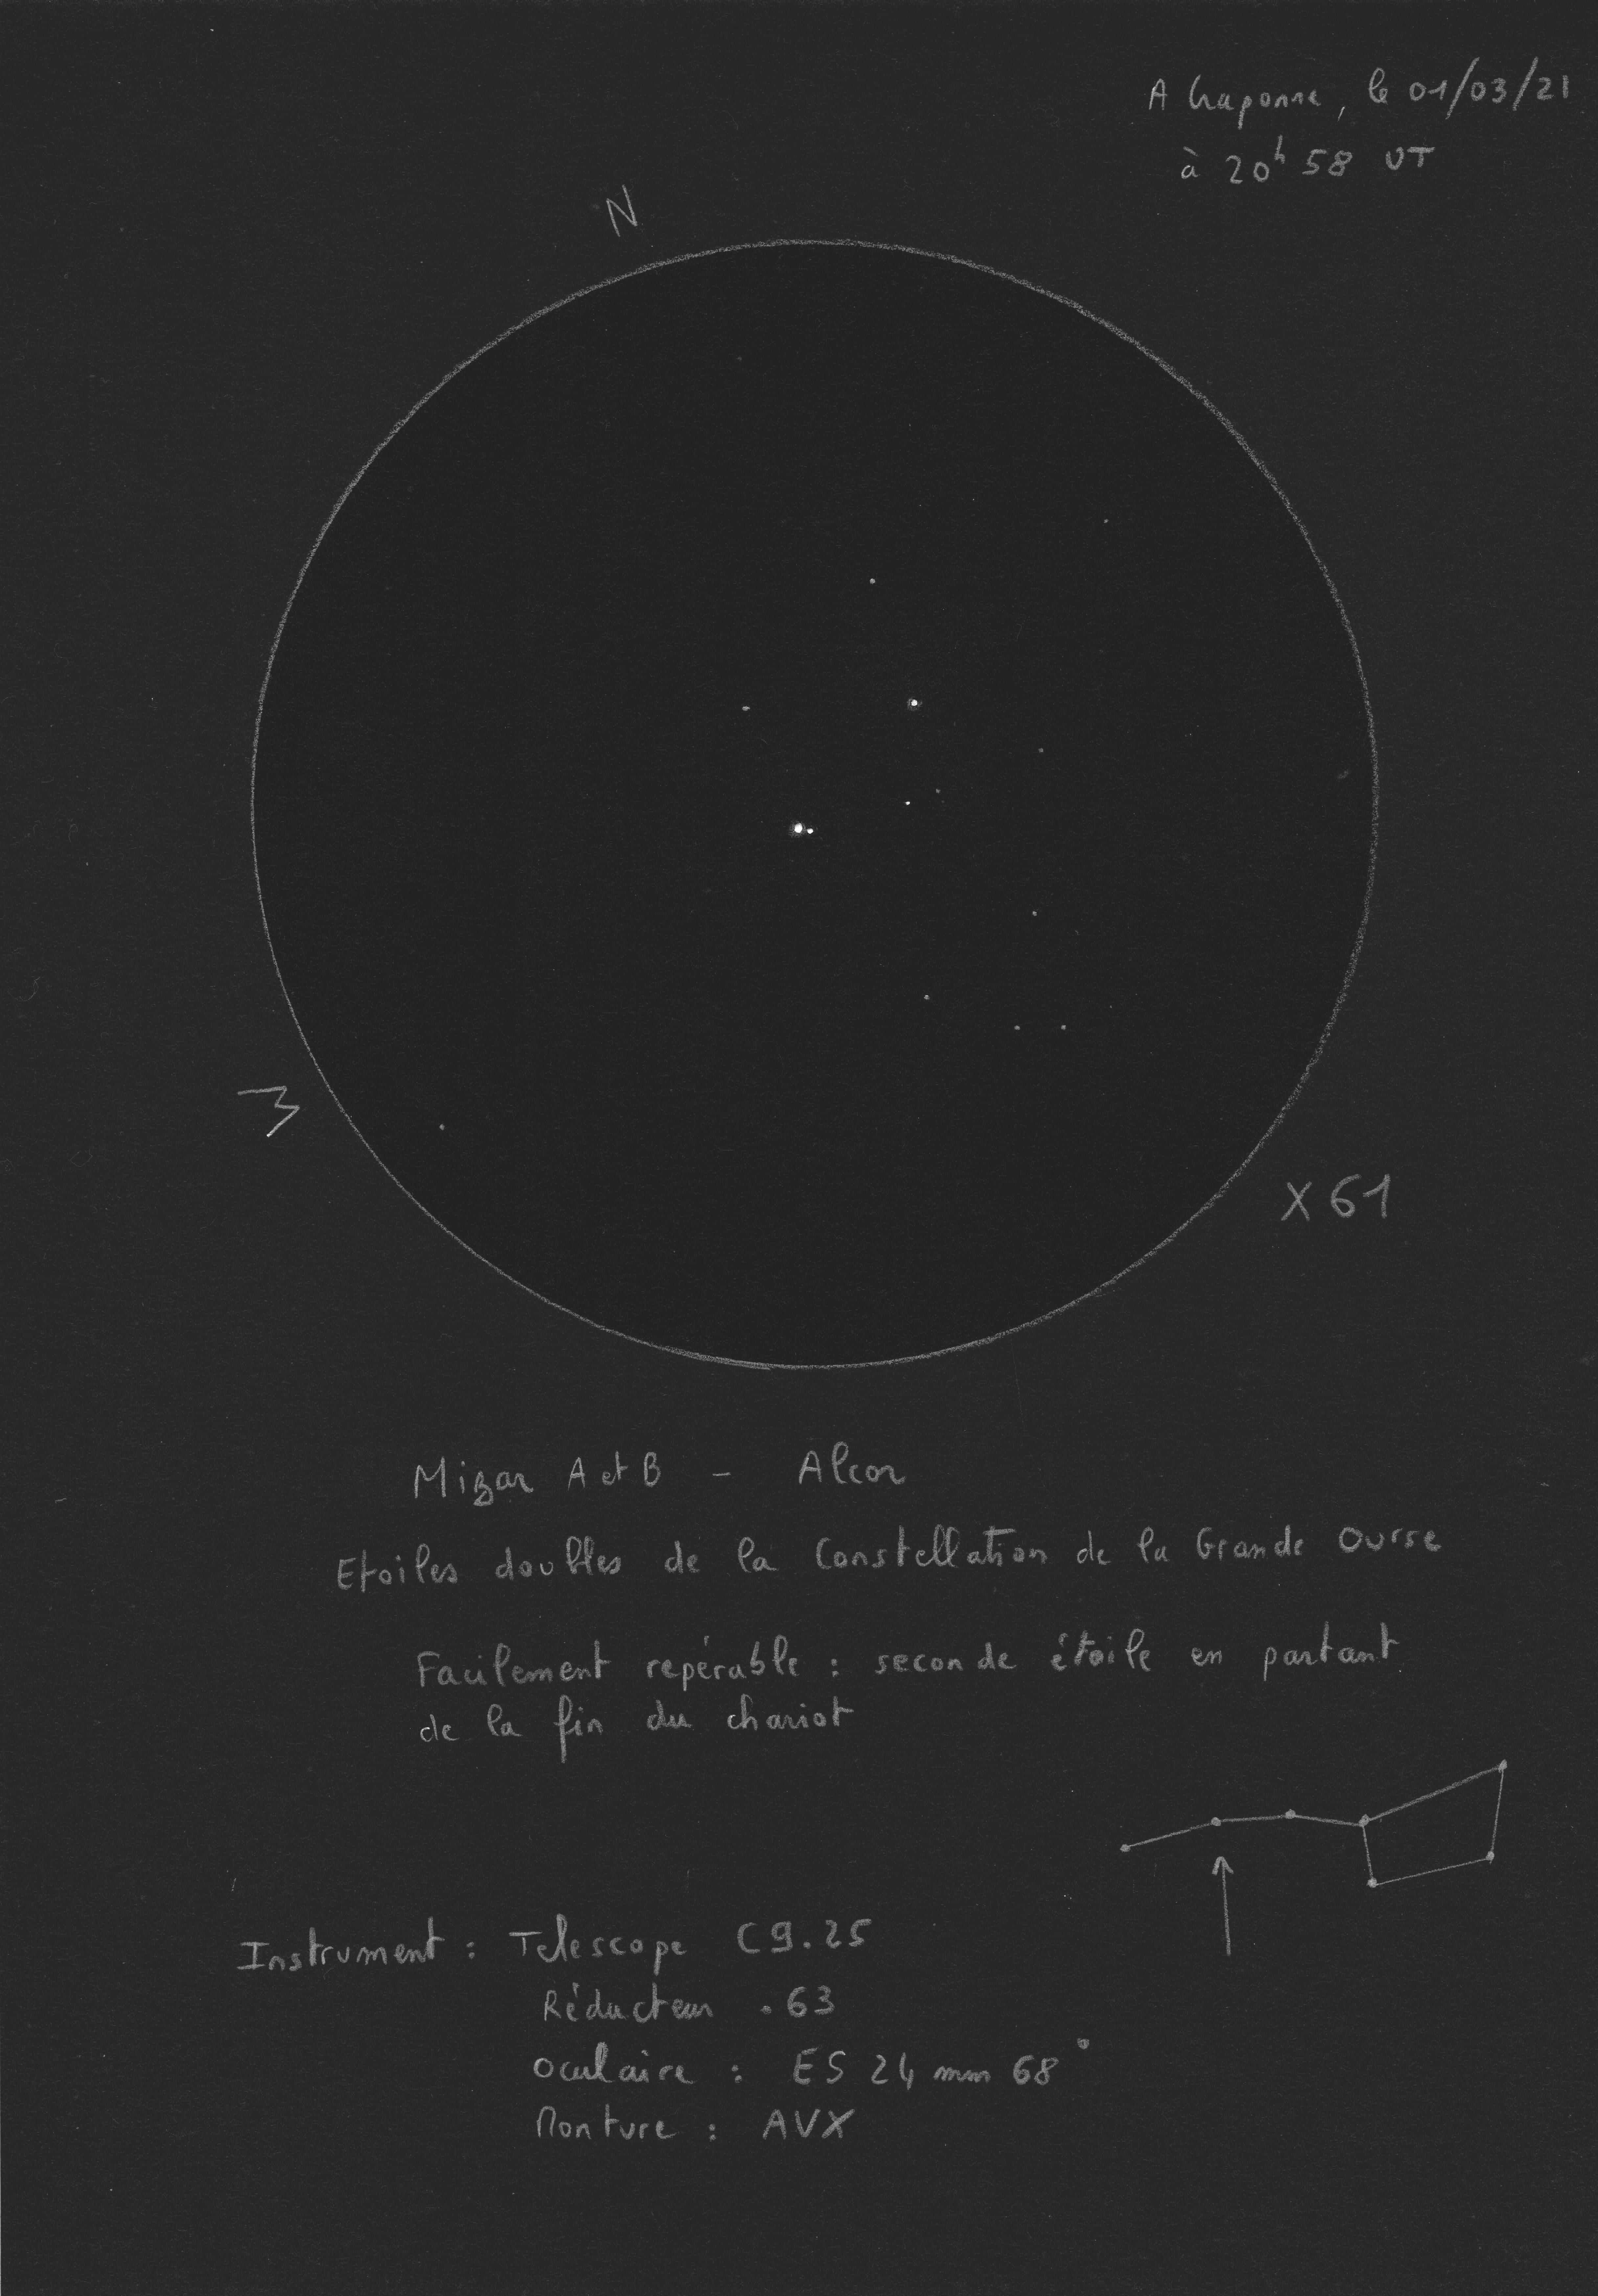 A Craponne, le 01/03/21
à 20h 58 UT
N
E
X 61
Mizar A et B - Alcor
Etoiles doubles de la Constellation de la Grande Ourse
Facilement repérable : seconde étoile en partant
de la fin du chariot
Instrument : Telescope C9.25
Réducteur .63
Oculaire : ES 24 mm 68°
Monture : AVX